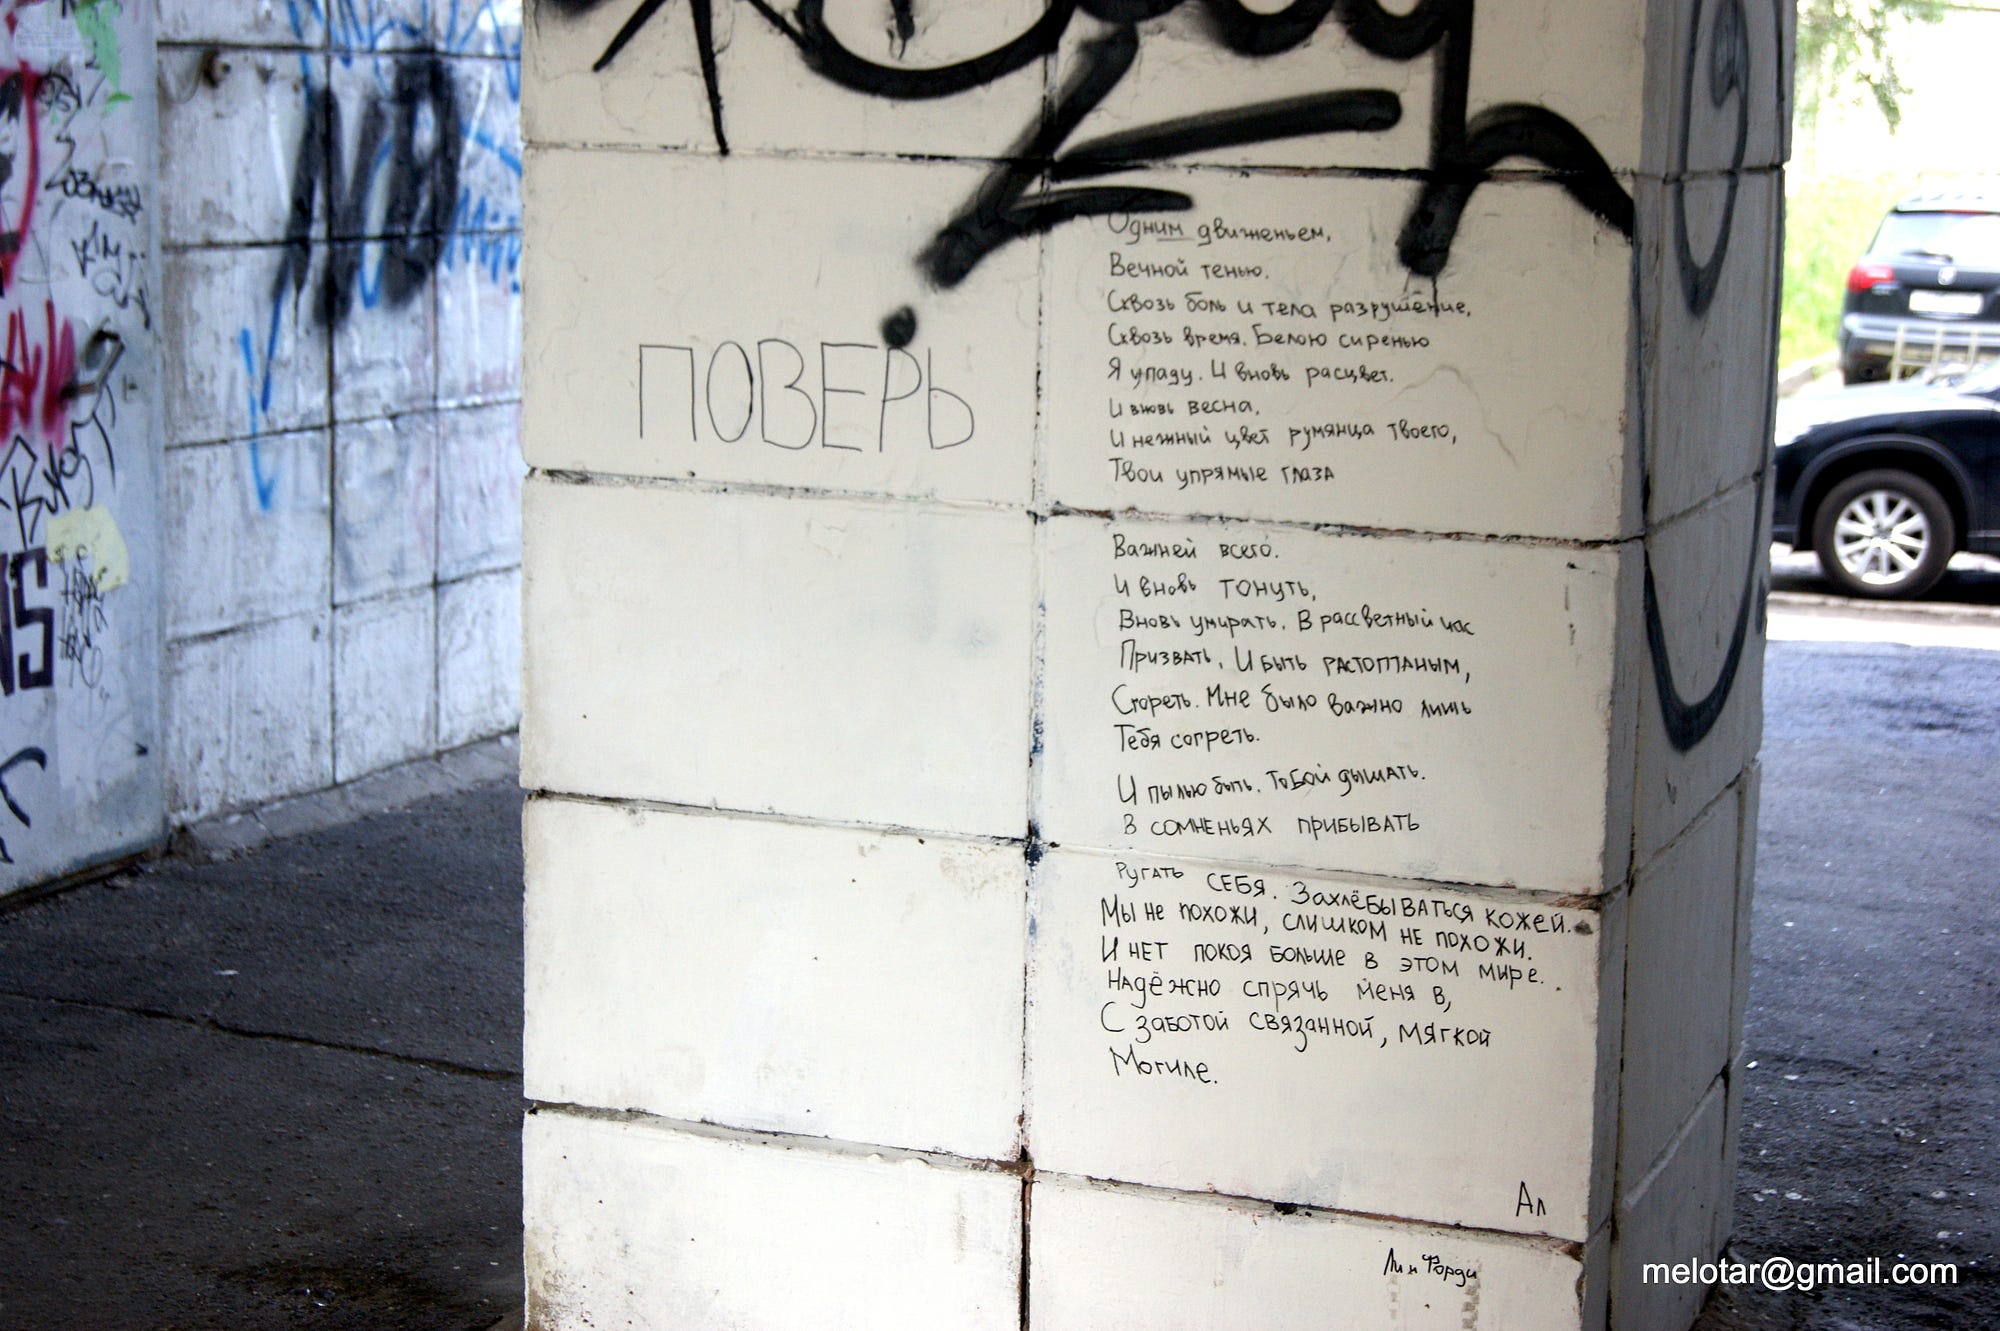 ПОВЕРЬ
Одним движеньем,
Вечной тенью.
Сквозь боль и тела разрушение,
Сквозь время. Белою сиренью
Я упаду. И вновь расцвет.
И вновь весна,
И нежный цвет румянца твоего,
Твои упрямые глаза
Важней всего.
И вновь тонуть,
Вновь умирать. В рассветный час
Призвать, И быть растоптаным,
Сгореть. Мне было важно лишь
Тебя согреть.
И пылью быть. Тобой дышать.
В сомненьях прибывать
Ругать СЕБЯ. Захлёбываться кожей.
Мы не похожи, слишком не похожи.
И нет покоя больше в этом мире.
Надёжно спрячь меня в,
С заботой связанной, мягкой
Могиле.
Ал
Лин Форди
melotar@gmail.com